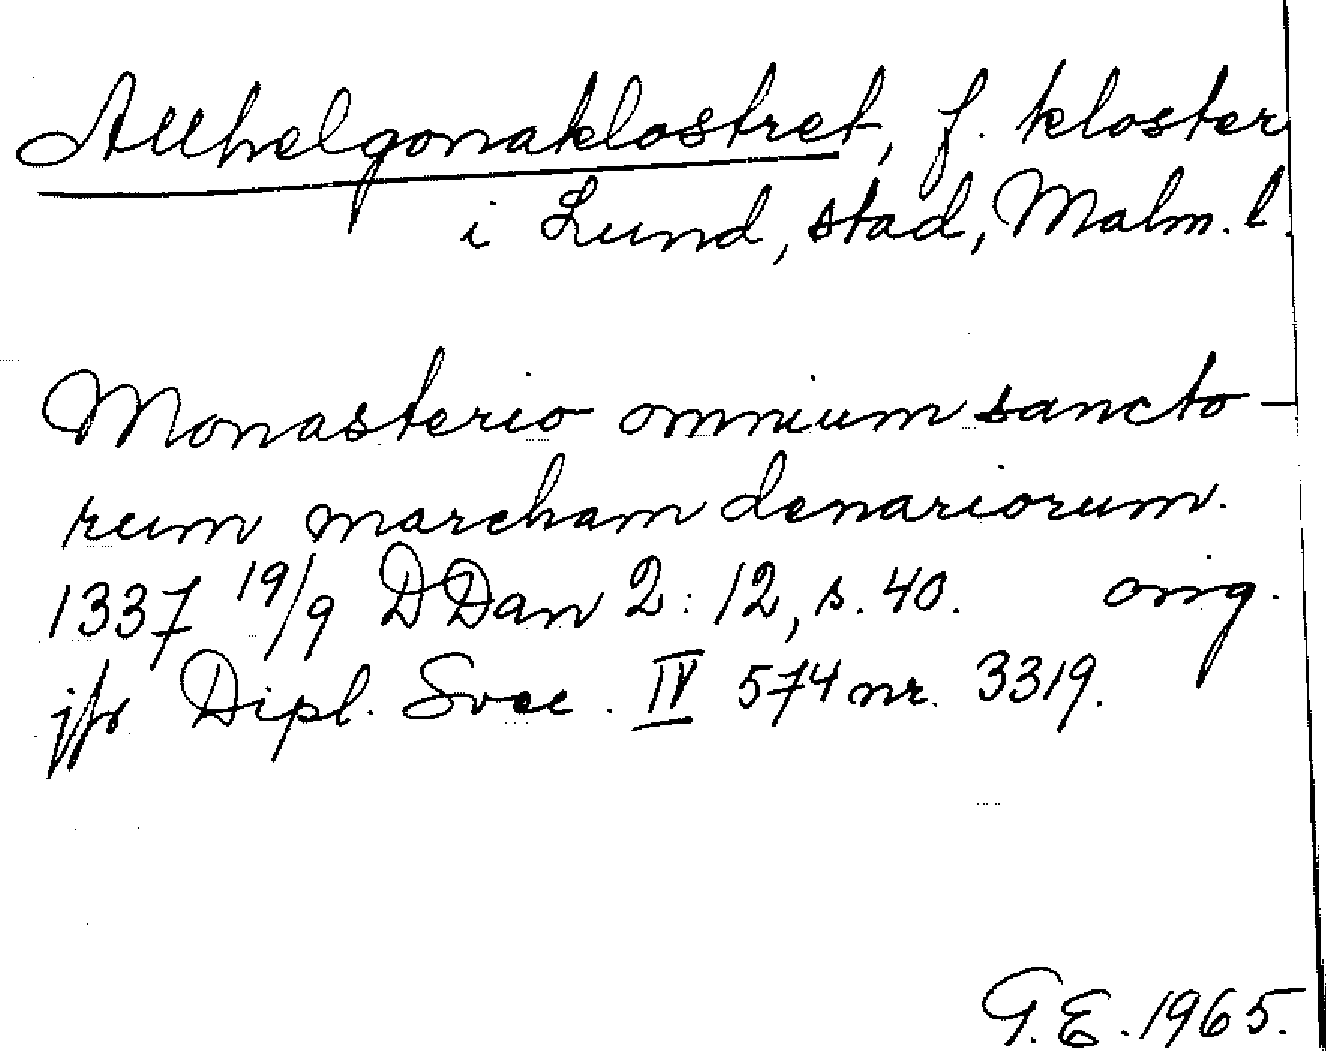 Allhelgonaklostret, f. kloster
i Lund, stad, Malm. l.
Monasterio omnium sancto-
rum marcham denariorum.
1337 19/9 DDan 2:12, s. 40. orig.
jfr Dipl. Svec. IV 574 nr. 3319.
G.E. 1965.